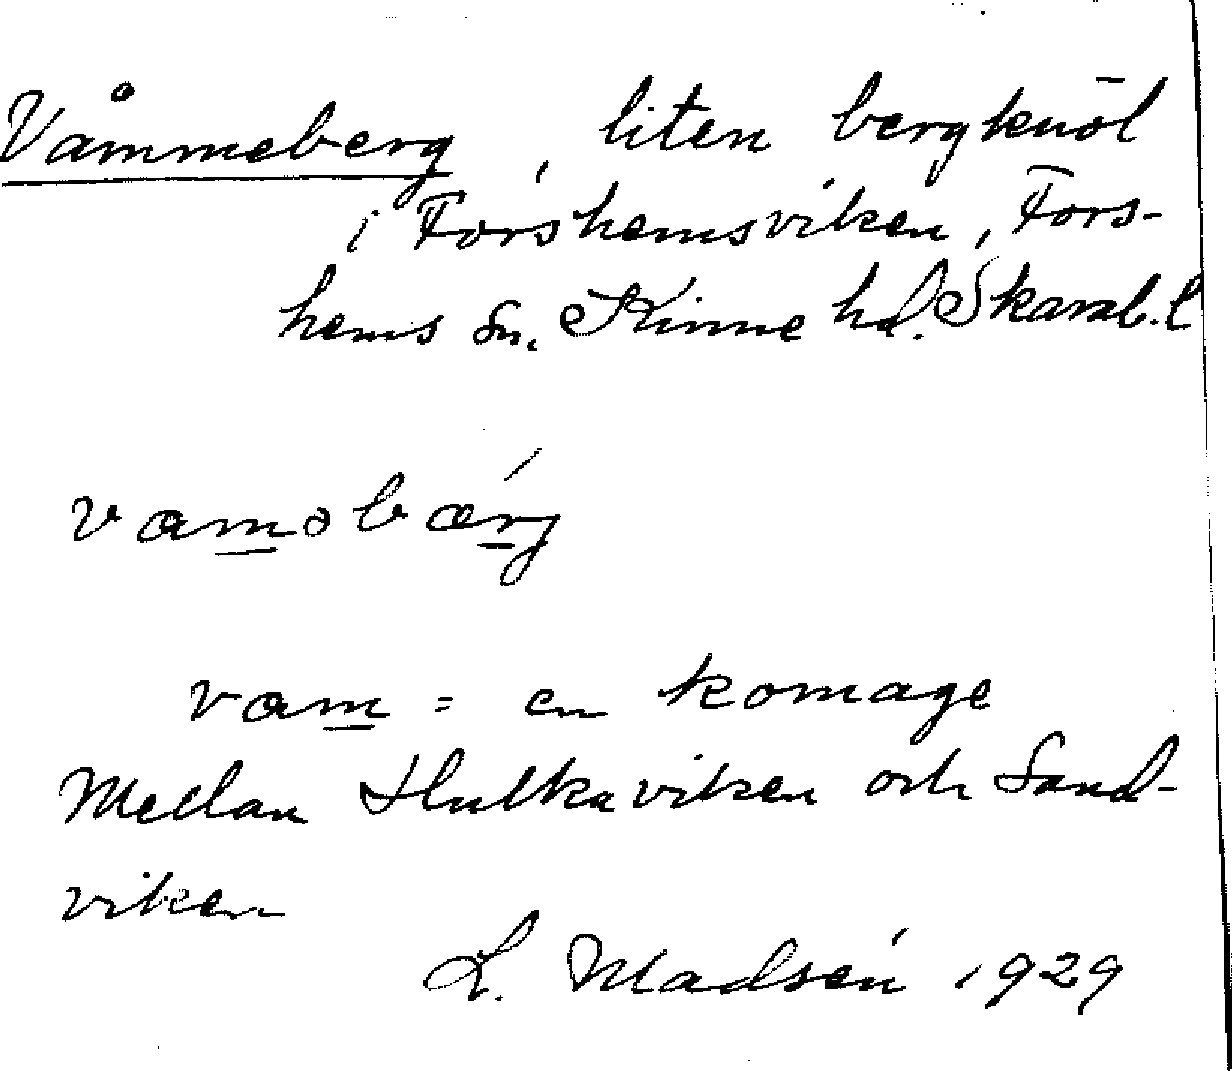 Våmmeberg, liten bergknöl
i Forshemsviken, Fors-
hems sn. Kinne hd. Skarab.l
vaməbærg
vam = en komage
Mellan Hulkaviken och Sand-
viken
L. Madsén 1929